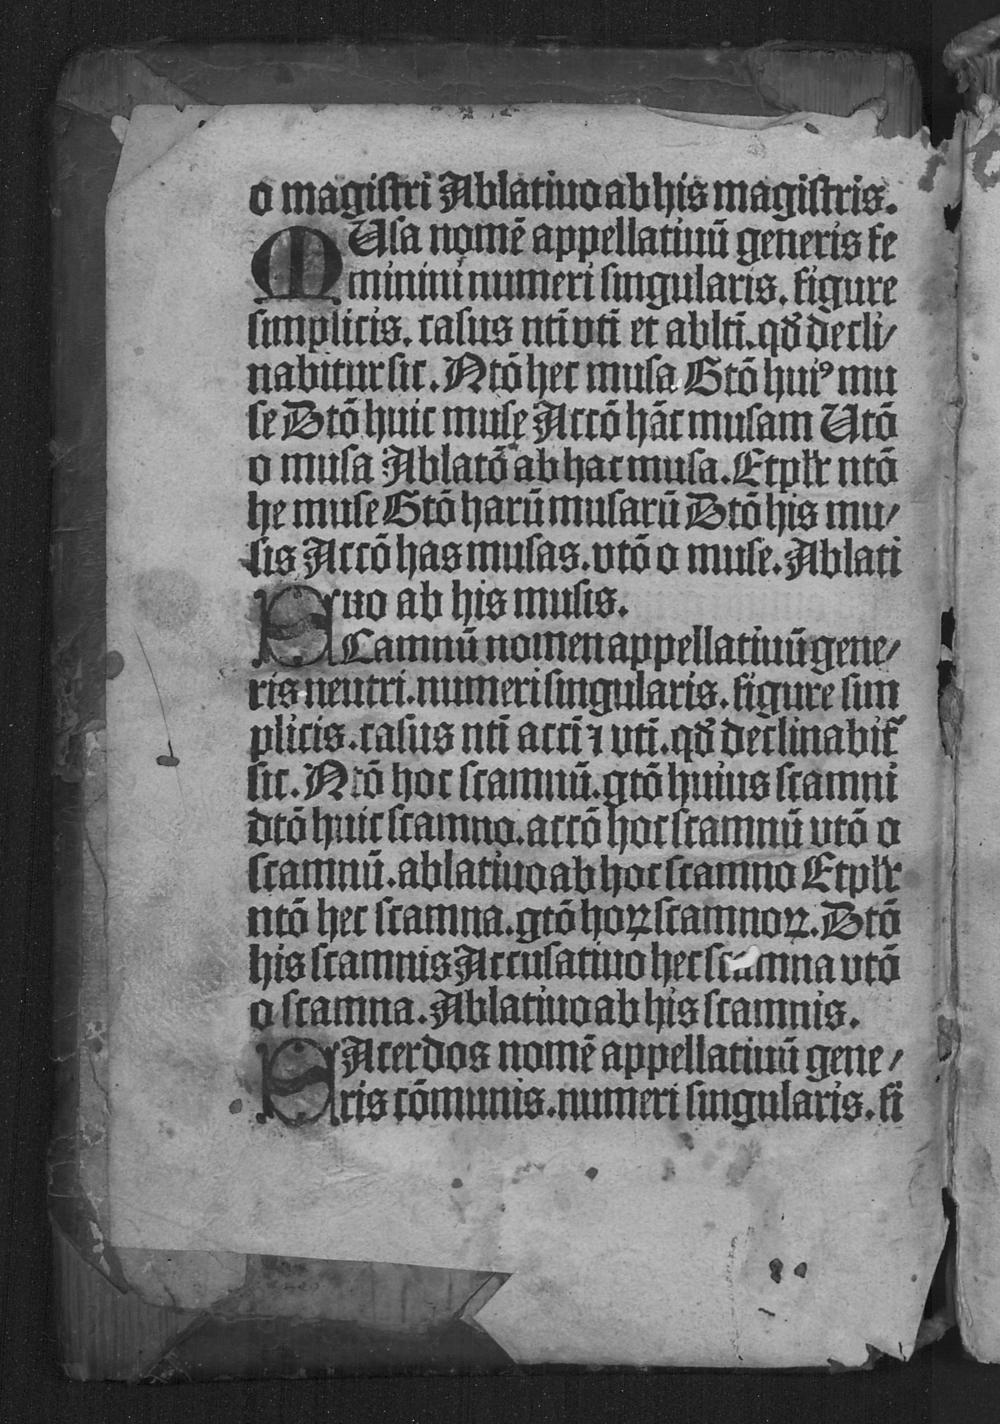 o magistri Ablatiuo ab his magistris.
MUsa nomē appellatiuū generis fe
minini numeri singularis. figure
simplicis. casus ntī vtī et abltī. qđ decli/
nabitur sic. Ntō hec musa Gtō huiꝰ mu
se Dtō huic muse Accō hāc musam Utō
o musa Ablatō ab hac musa. Et plr ntō
he muse Gtō harū musarū Dtō his mu/
sis Accō has musas. vtō o muse. Ablati
uo ab his musis.
SCamnū nomen appellatiuū gene/
ris neutri. numeri singularis. figure sim
plicis. casus ntī accī ⁊ vtī. qđ declinabit᷑
sic. Ntō hoc scamnū. gtō huius scamni
dtō huic scamno. accō hoc scamnū vtō o
scamnū. ablatiuo ab hoc scamno Et plr
ntō hec scamna. gtō hoꝝ scamnoꝝ. Dtō
his scamnis Accusatiuo hec scamna vtō
o scamna. Ablatiuo ab his scamnis.
SAcerdos nomē appellatiuū gene/
ris cōmunis. numeri singularis. fi